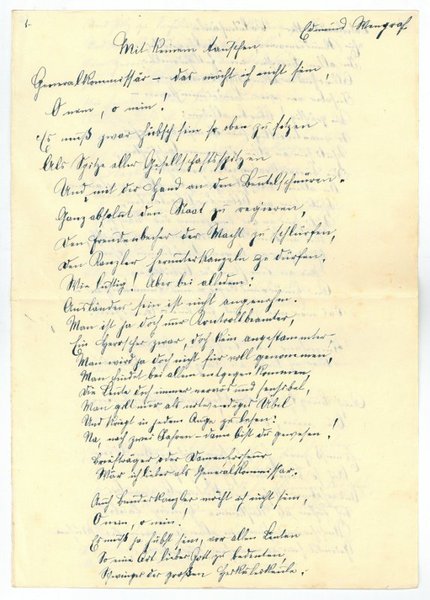 1.
Edmund Wengraf
Mit keinem tauschen
Generalkommissär – das möcht ich nicht sein,
O nein, o nein!
Es muß zwar hübsch sein so oben zu sitzen
Als Spitze aller Gesellschaftsspitzen
Und mit der Hand an den Beutelschnüren
Ganz absolut den Staat zu regieren,
Den Freudenbecher der Macht zu schlürfen,
Den Kanzler herunterkanzeln zu dürfen,
Wie lustig! Aber bei alldem:
Ausländer sein ist nicht angenehm.
Man ist ja doch nur Kontrollbeamter,
Ein Herrscher zwar, doch kein angestammter,
Man wird ja doch nicht für voll genommen,
Man findet bei allem entgegenkommen,
Die Leute doch immer nervös und sensibel,
Man gilt nur als notwendiges Übel
Und kriegt in jedem Auge zu lesen:
Na, noch zwei Jahre – dann bist du gewesen!
Briefträger oder Damenfriseur
Wär ich lieber als Generalkommissar.
Auch Bundeskanzler möcht ich nicht sein,
O nein, o nein!
Es muß ja hübsch sein, vor allen Leuten
So eine Art lieber Gott zu bedeuten,
Schwinger der großen Herkuleskeule.